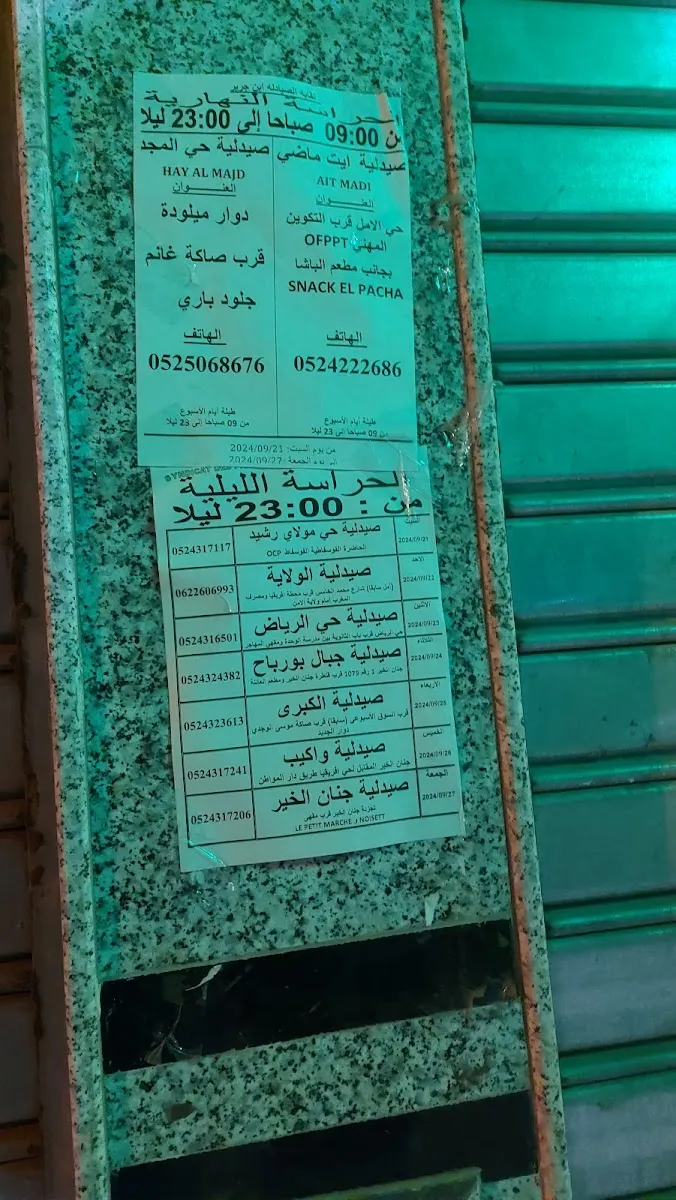 نقابة الصيادلة ابن جرير
الحراسة النهارية
من 09:00 صباحا إلى 23:00 ليلا
صيدلية ايت ماضي
AIT MADI
العنــــوان
حي الامل قرب التكوين
المهني OFPPT
بجانب مطعم الباشا
SNACK EL PACHA
الهاتف
0524222686
طيلة أيام الأسبوع
من 09 صباحا إلى 23 ليلا
صيدلية حي المجد
HAY AL MAJD
العنــــوان
دوار ميلودة
قرب صاكة غانم
جلود باري
الهاتف
0525068676
طيلة أيام الأسبوع
من 09 صباحا إلى 23 ليلا
من يوم السبت: 2024/09/21
إلى يوم الجمعة: 2024/09/27
SYNDICAT
الحراسة الليلية
من : 23:00 ليلا
السبت
2024/09/21
صيدلية حي مولاي رشيد
الحاضرة الفوسفاطية الفوسفاط OCP
0524317117
الاحد
2024/09/22
صيدلية الولاية
(أمن سابقا) شارع محمد الخامس قرب محطة افريقيا ومصرف
المغرب أمام ولاية الأمن
0622606993
الاثنين
2024/09/23
صيدلية حي الرياض
حي الرياض قرب باب الثانوية بين مدرسة الوحدة ومقهى المهاجر
0524316501
الثلاثاء
2024/09/24
صيدلية جبال بورباح
جنان الخير 1 رقم 1079 قرب قنطرة جنان الخير ومطعم العائلة
0524324382
الاربعاء
2024/09/25
صيدلية الكبرى
قرب السوق الأسبوعي (سابقا) قرب صاكة موسى الوجدي
دوار الجديد
0524323613
الخميس
2024/09/26
صيدلية واكيب
جنان الخير المقابل لحي افريقيا طريق دار المواطن
0524317241
الجمعة
2024/09/27
صيدلية جنان الخير
تجزئة جنان الخير قرب مقهى
LE PETIT MARCHE و NOISETT
0524317206